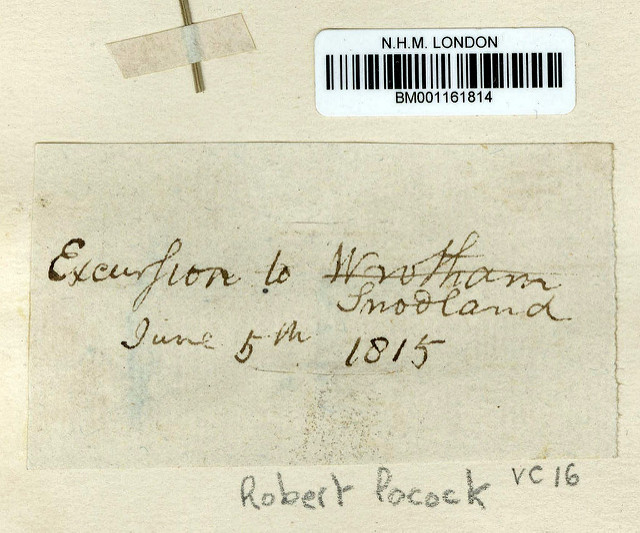 N.H.M. LONDON
BM001161814
Excursion to Wrotham
Snodland
June 5th 1815
Robert Pocock VC 16